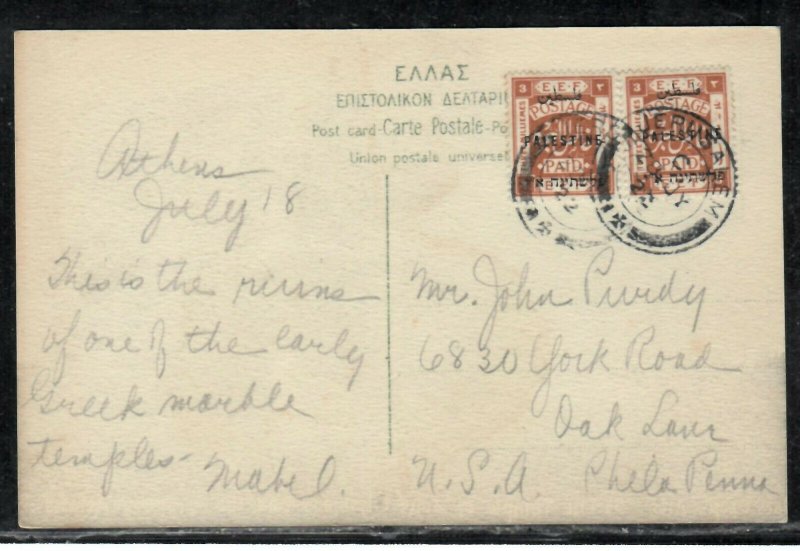 ΕΛΛΑΣ
ΕΠΙΣΤΟΛΙΚΟΝ ΔΕΛΤΑΡΙ
Post card-Carte Postale-Po
Union postale universe
Athens
July 18
This is the ruins
of one of the early
Greek marble
temples-
Mabel.
E.E.F.
3 ٣
فلسطين
POSTAGE
PALESTINE
PAID
פלשתינה א״י
E.E.F.
3 ٣
فلسطين
POSTAGE
PALESTINE
PAID
פלשתינה א״י
JERUSALEM
Mr. John Purdy
6830 York Road
Oak Lane
U.S.A. Phela Penna